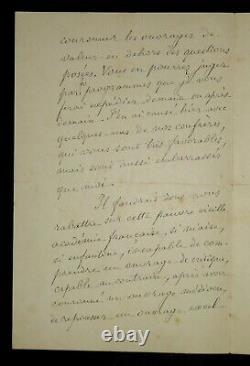 couronner les ouvrages de
valeur en dehors des questions
posées. Vous en pourrez juger
par programmes que je vous
ferai expédier demain ou après
demain. J'en ai causé hier avec
quelques-uns de nos confrères,
qui vous sont très favorables,
mais sont aussi embarrassés
que moi.
Il faudrait donc vous
rabattre sur cette pauvre vieille
académie française, si niaise,
si enfantine, incapable de com-
prendre un ouvrage de critique,
capable au contraire, après avoir
couronné un ouvrage médiocre,
de repousser un ouvrage